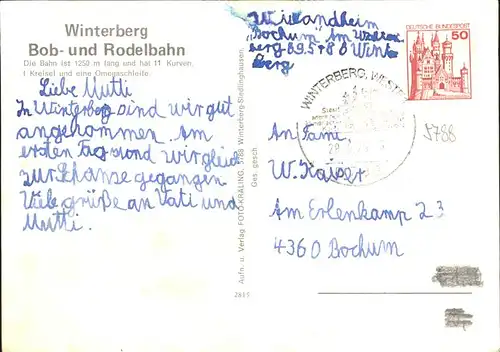 Winterberg
Bob- und Rodelbahn
Die Bahn ist 1250 m lang und hat 11 Kurven,
1 Kreisel und eine Omegaschleife
Liebe Mutti
In Winterberg sind wir gut
angekommen. Am
ersten Tag sind wir gleich
zur Schanze gegangen
Viele grüße an Vati und
Mutti.
Aufn. u. Verlag FOTO-KRALING, 5788 Winterberg-Siedlinghausen,
Ges. gesch.
2615
Wielandheim
"Bochum" Am
berg 69.5780 Wint
berg
DEUTSCHE BUNDESPOST
50
WINTERBERG, WESTF
5788
An Fami
W. Kaiser
Am Erlenkamp 23
4360 Bochum